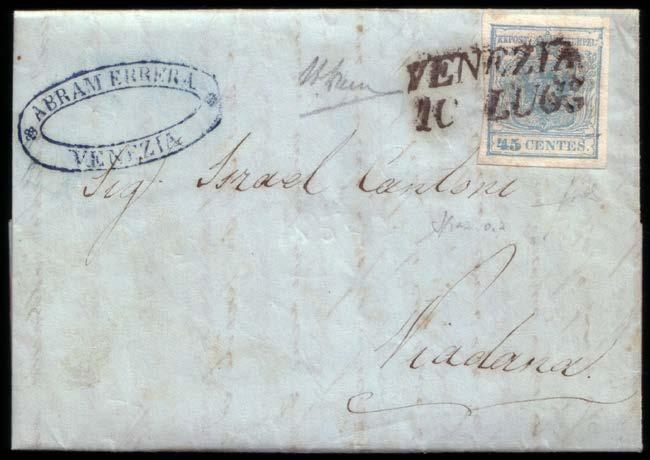 ABRAM ERRERA
VENEZIA
VENEZIA
10 LUG.
KKPOST-STEMPEL
45 CENTES.
Sigr Israel Cantoni
Viadana